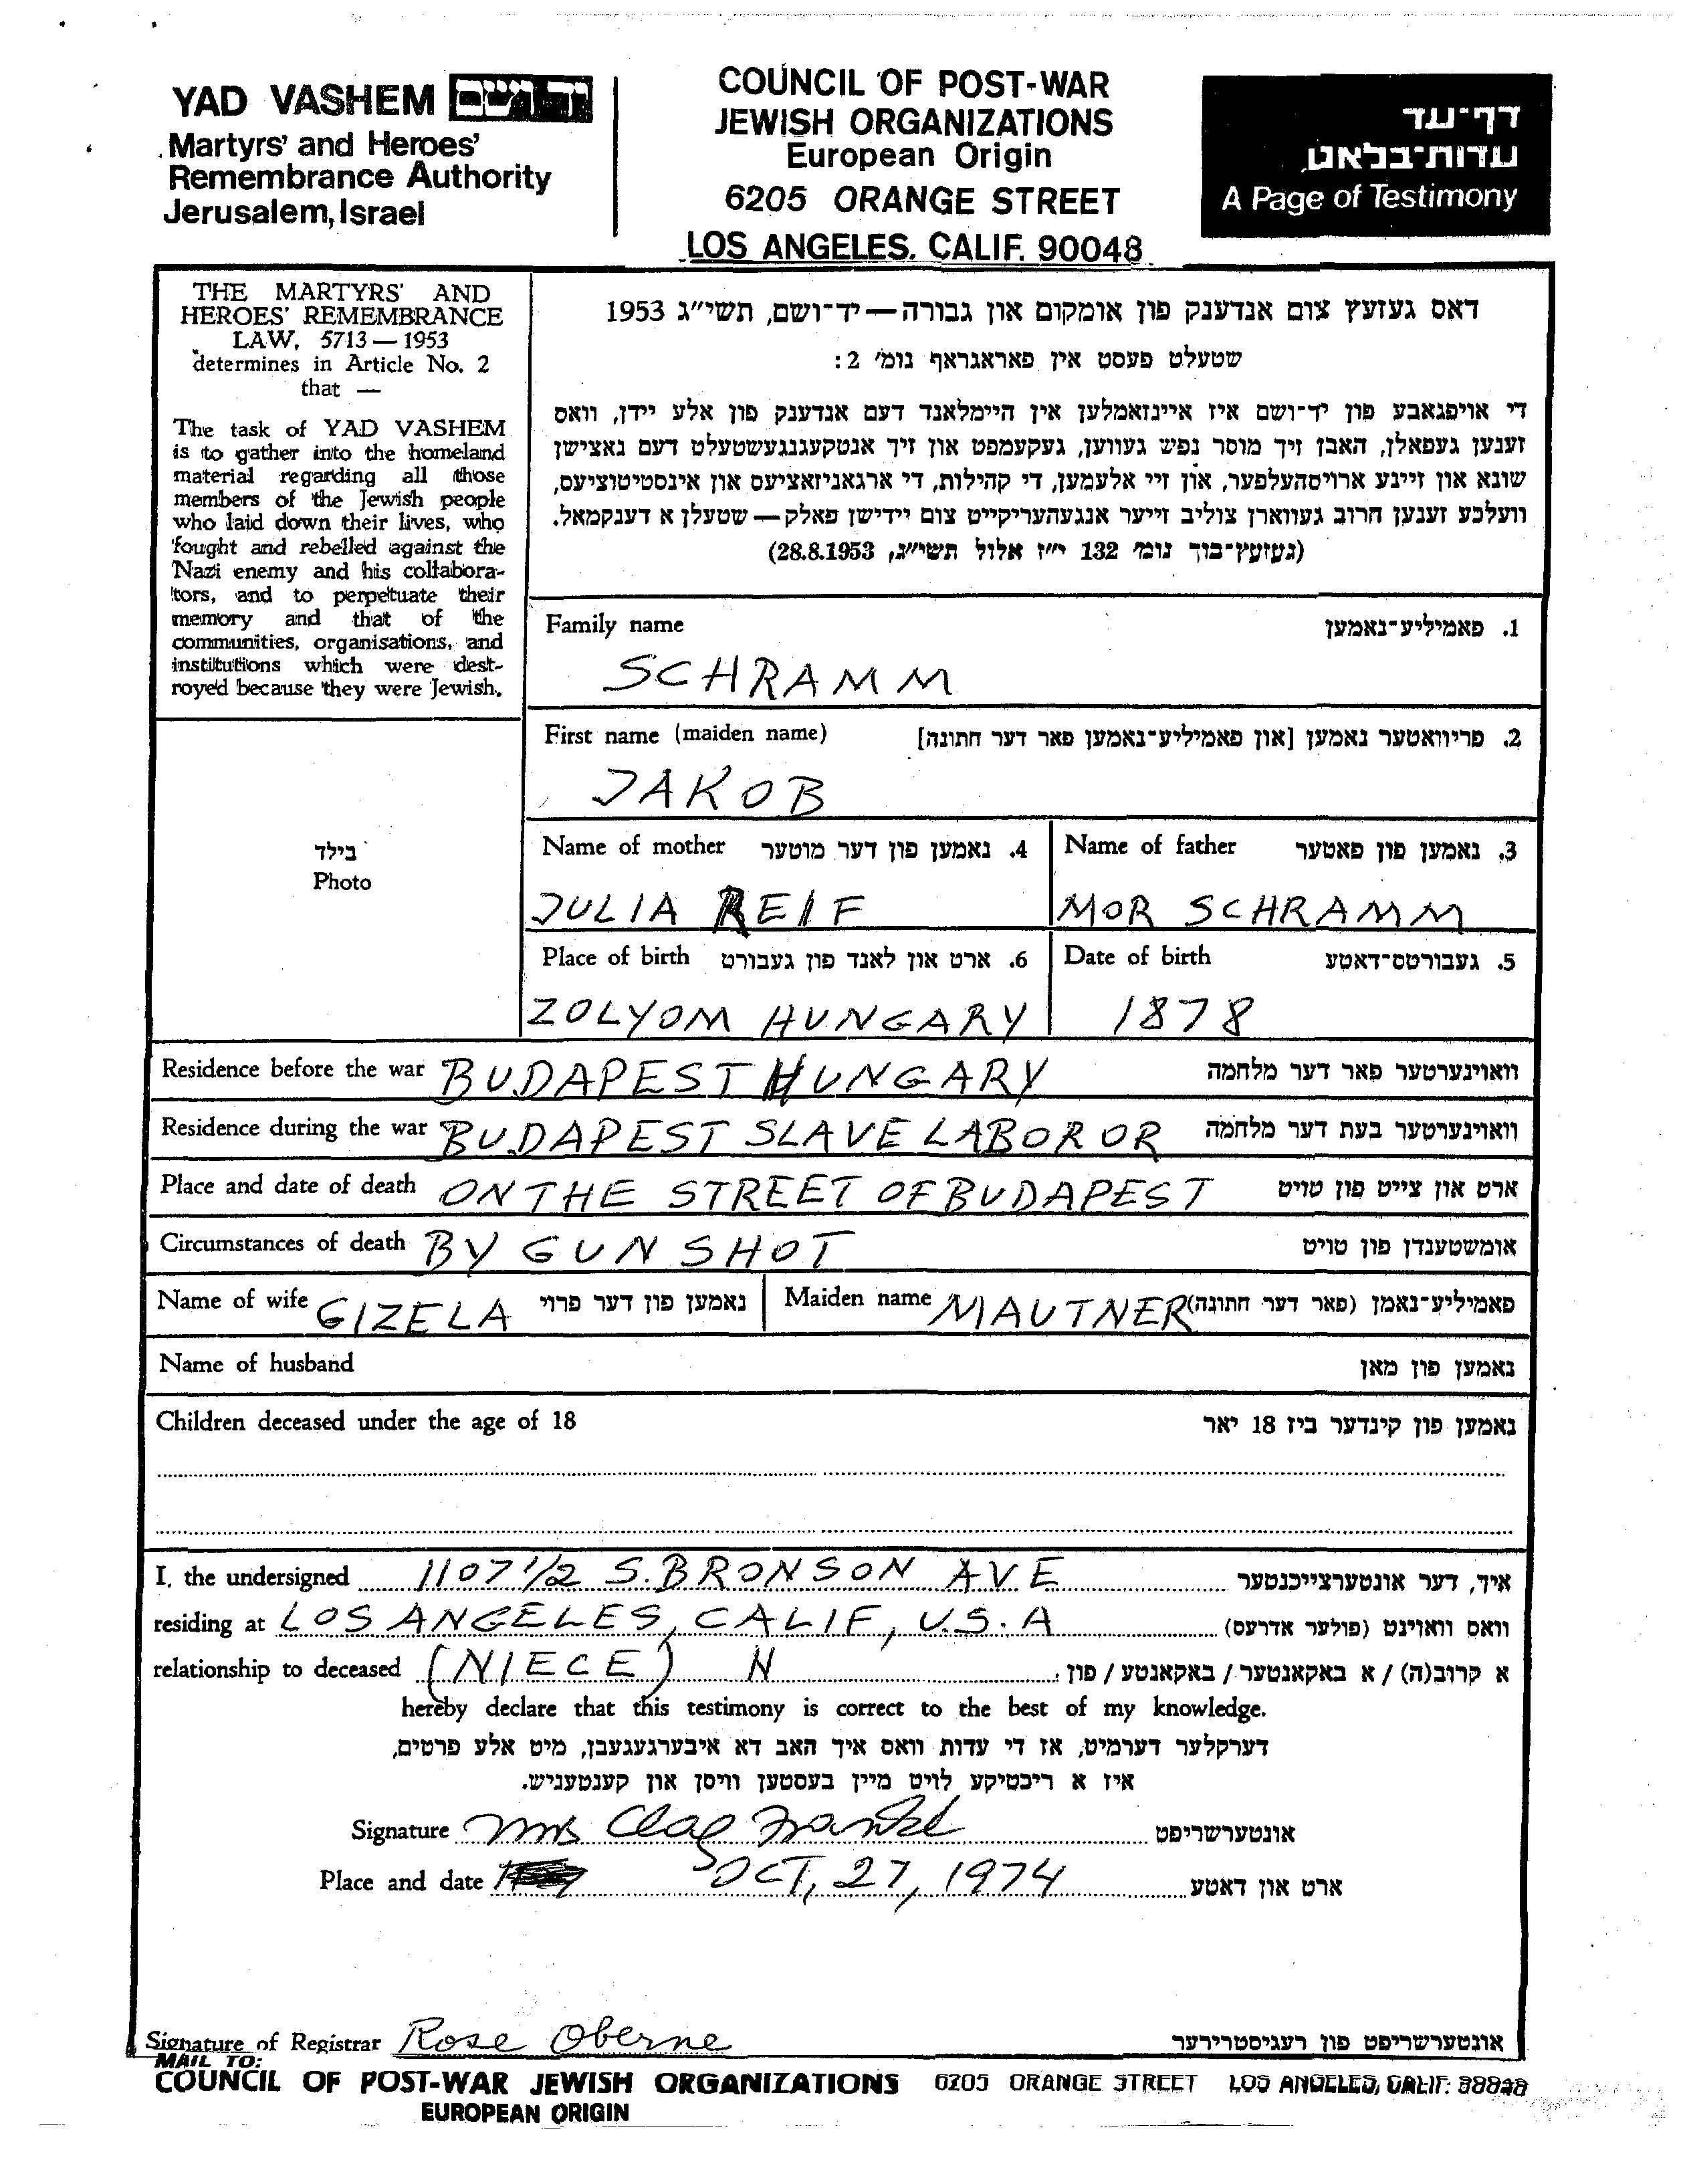 YAD VASHEM יד ושם
Martyrs' and Heroes'
Remembrance Authority
Jerusalem, Israel
COUNCIL OF POST-WAR
JEWISH ORGANIZATIONS
European Origin
6205 ORANGE STREET
LOS ANGELES, CALIF. 90048
דף-עד
עדות-בלאט
A Page of Testimony
THE MARTYRS' AND
HEROES' REMEMBRANCE
LAW, 5713 — 1953
determines in Article No. 2
that —
The task of YAD VASHEM
is to gather into the homeland
material regarding all those
members of the Jewish people
who laid down their lives, who
fought and rebelled against the
Nazi enemy and his collabora-
tors, and to perpetuate their
memory and that of the
communities, organisations, and
institutions which were dest-
royed because they were Jewish.
דאס געזעץ צום אנדענק פון אומקום און גבורה — יד-ושם, תשי"ג 1953
שטעלט פעסט אין פאראגראף נומ' 2:
די אויפגאבע פון יד-ושם איז איינזאמלען אין היימלאנד דעם אנדענק פון אלע יידן, וואס
זענען געפאלן, האבן זיך מוסר נפש געווען, געקעמפט און זיך אנטקעגנגעשטעלט דעם נאצישן
שונא און זיינע ארויסהעלפער, און זיי אלעמען, די קהילות, די ארגאניזאציעס און אינסטיטוציעס,
וועלכע זענען חרוב געווארן צוליב זייער אנגעהעריקייט צום יידישן פאלק — שטעלן א דענקמאל.
(געזעץ-בוך נומ' 132 י"ז אלול תשי"ג, 28.8.1953)
Family name 1. פאמיליע-נאמען
SCHRAMM
First name (maiden name) 2. פריוואטער נאמען [און פאמיליע-נאמען פאר דער חתונה]
JAKOB
בילד
Photo
Name of mother 4. נאמען פון דער מוטער
JULIA REIF
Name of father 3. נאמען פון פאטער
MOR SCHRAMM
Place of birth 6. ארט און לאנד פון געבורט
ZOLYOM HUNGARY
Date of birth 5. געבורטס-דאטע
1878
Residence before the war BUDAPEST HUNGARY וואוינערטער פאר דער מלחמה
Residence during the war BUDAPEST SLAVE LABOROR וואוינערטער בעת דער מלחמה
Place and date of death ON THE STREET OF BUDAPEST ארט און צייט פון טויט
Circumstances of death BY GUN SHOT אומשטענדן פון טויט
Name of wife GIZELA נאמען פון דער פרוי Maiden name MAUTNER פאמיליע-נאמן (פאר דער חתונה)
Name of husband נאמען פון מאן
Children deceased under the age of 18 נאמען פון קינדער ביז 18 יאר
I, the undersigned 1107 1/2 S. BRONSON AVE איך, דער אונטערצייכנטער
residing at LOS ANGELES, CALIF, U.S.A וואס וואוינט (פולער אדרעס)
relationship to deceased (NIECE) N א קרוב(ה) / א באקאנטער / באקאנטע / פון:
hereby declare that this testimony is correct to the best of my knowledge.
דערקלער דערמיט, אז די עדות וואס איך האב דא איבערגעגעבן, מיט אלע פרטים,
איז א ריכטיקע לויט מיין בעסטען וויסן און קענטעניש.
Signature Mrs אונטערשריפט
Place and date OCT, 27, 1974 ארט און דאטע
Signature of Registrar Rose Oberne אונטערשריפט פון רעגיסטרירער
MAIL TO:
COUNCIL OF POST-WAR JEWISH ORGANIZATIONS 6205 ORANGE STREET LOS ANGELES, CALIF.
EUROPEAN ORIGIN